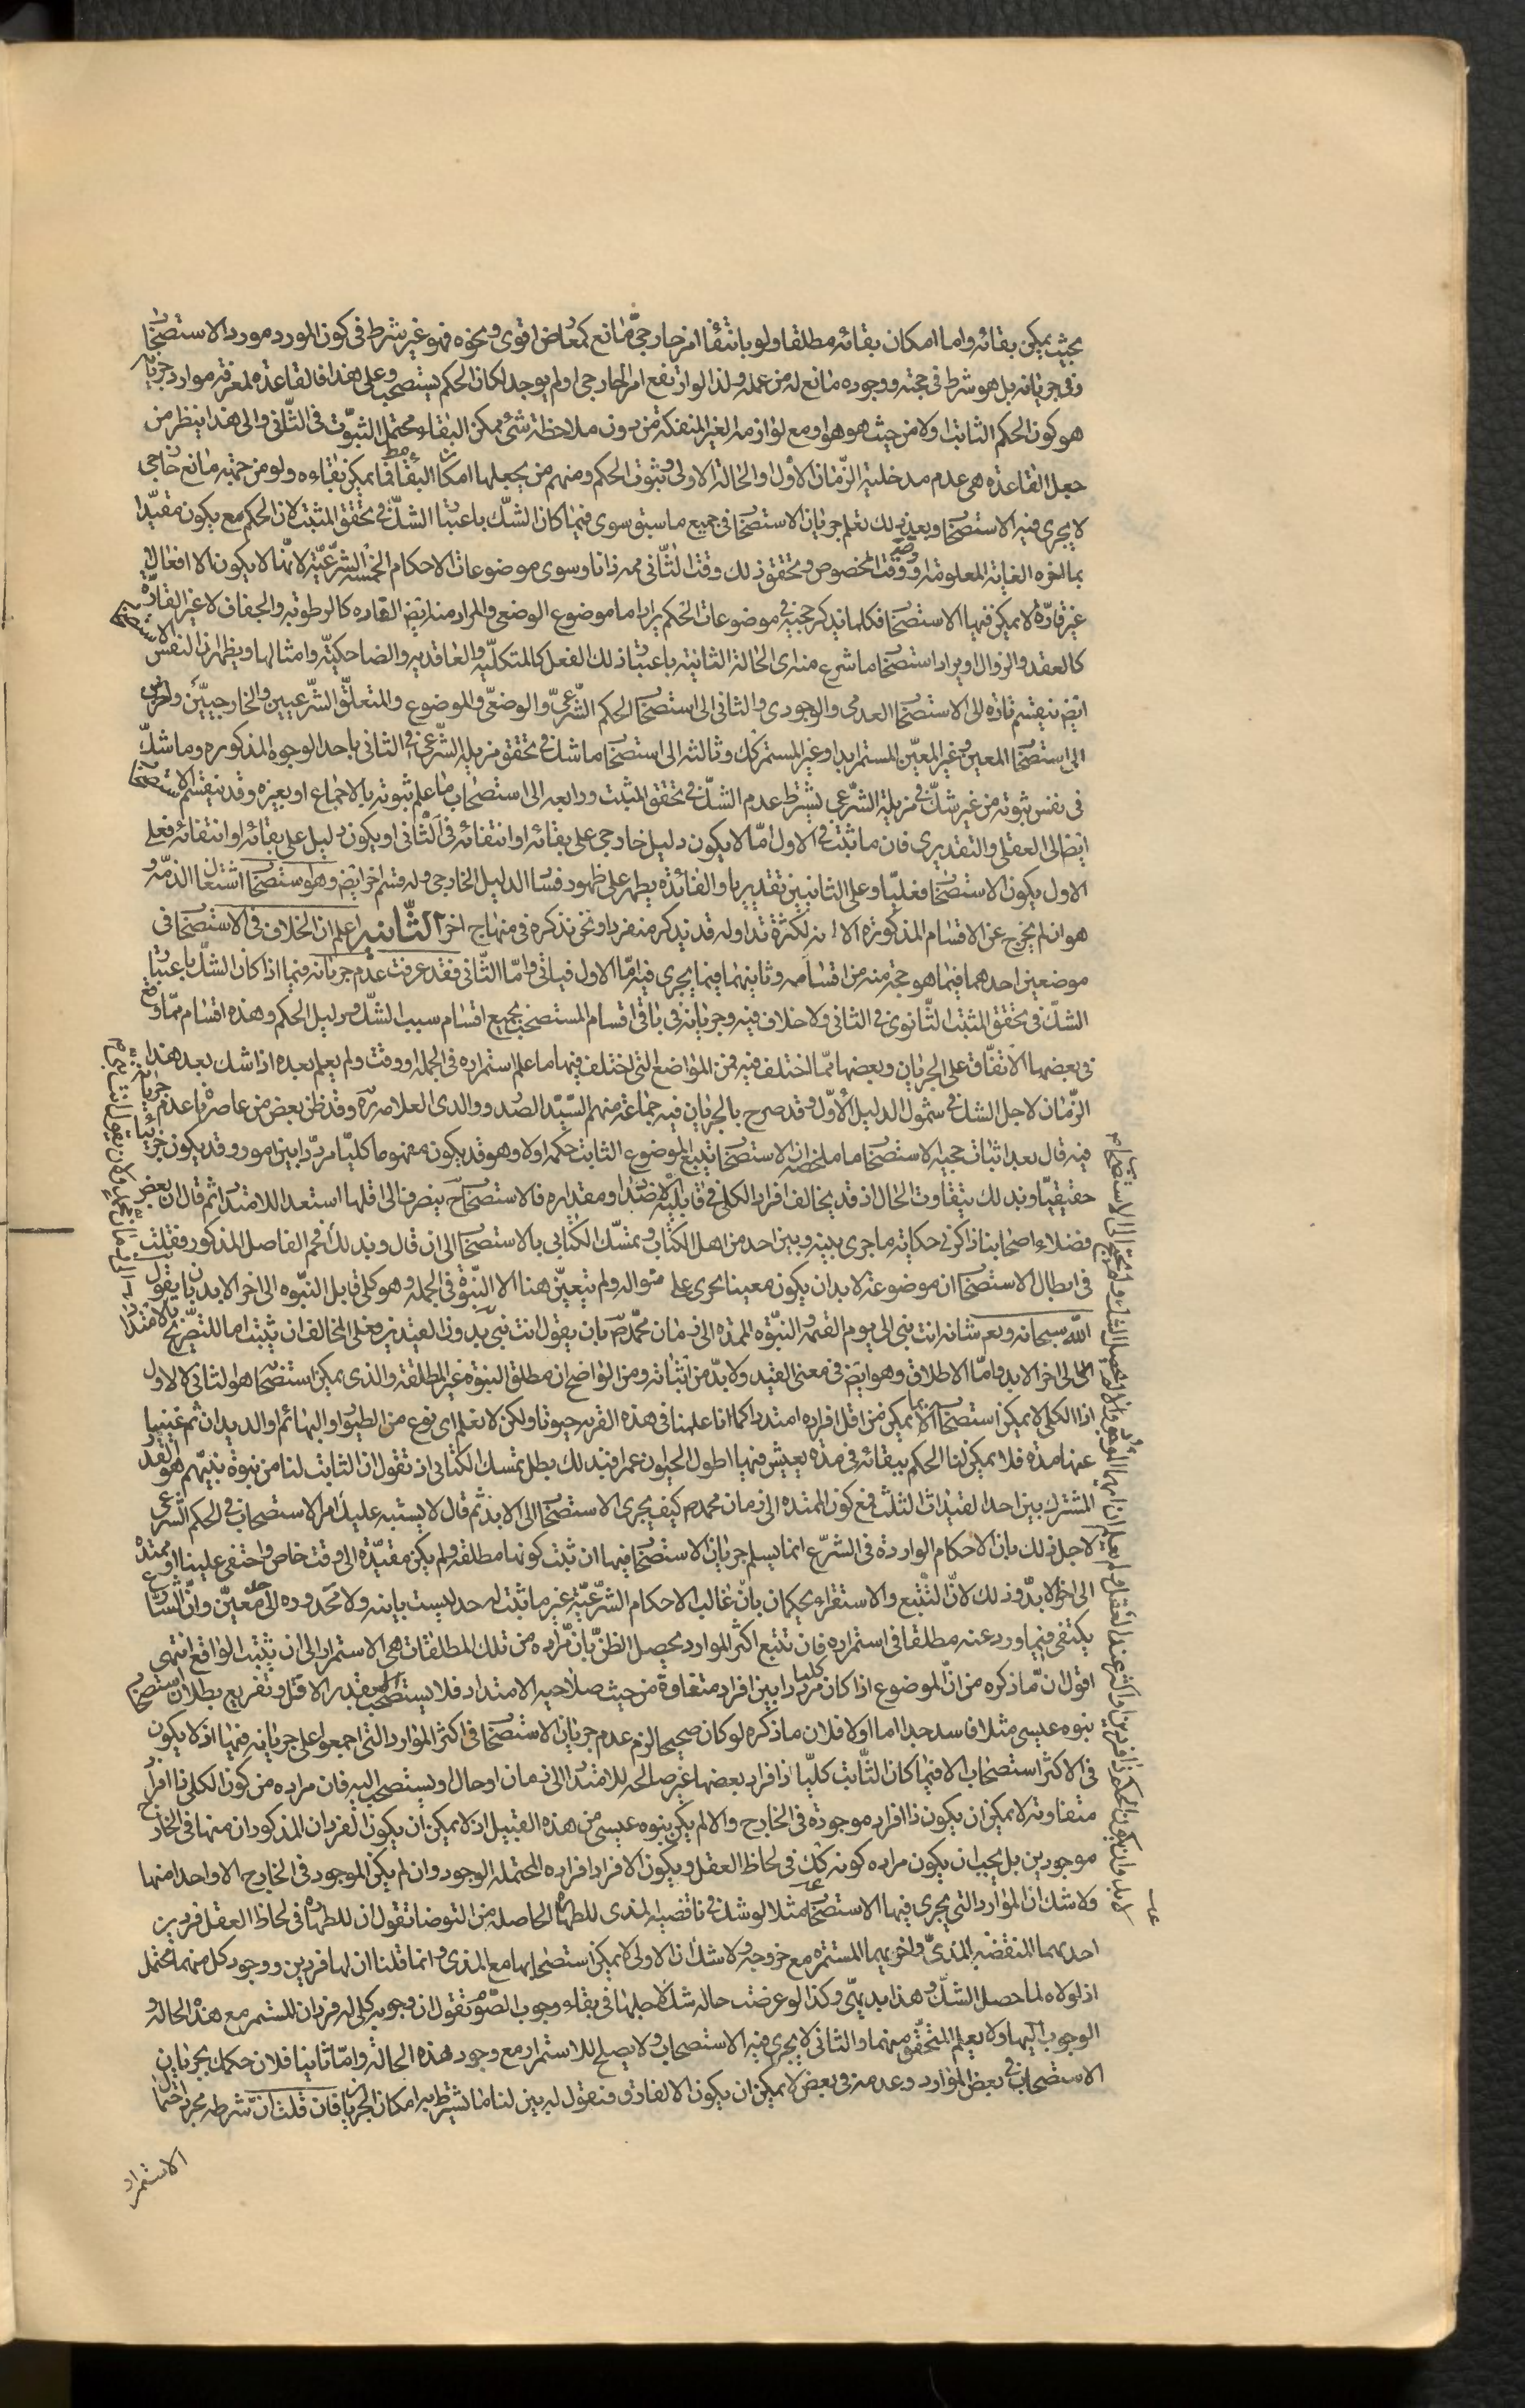 بحيث يمكن بقائه واما امكان بقائه مطلقا ولو بانتفاء امر خارجى مانع كمعارض اقوى ونحوه فهو غير شرط فى كون المورد مورد الاستصحاب
وفى جريانه بل هو شرط فى حجته ووجوده مانع له من عمله ولذا لو ارتفع امر الخارجى او لم يوجد لكان الحكم يستصحب وعلى هذا فالقاعدة لمعرفة موارد جريانه
هو كون الحكم الثابت اولا من حيث هو هو او مع لوازمه الغير المنفكة من دون ملاحظة شىء ممكن البقاء محتمل الثبوت فى الثانى والى هذا ينظر من
جعل القاعدة هى عدم مدخلية الزمان الاول او الحالة الاولى فى ثبوت الحكم ومنهم من يجعلها امكان البقاء فما يمكن بقاءه ولو من جهة مانع خارجى
لا يجرى فيه الاستصحاب وبعد ذلك تعلم جريان الاستصحاب فى جميع ما سبق سوى فيما كان الشك باعتبار الشك فى تحقق المثبت لان الحكم مع يكون مقيدا
بما لغوه الغاية المعلومة او وقت المخصوص وتحقق ذلك وقت الثانى مم ذاتا وسوى موضوعات الاحكام الخمسة الشرعية لانها لا يكون الا افعال
غير قارة لا يمكن فيها الاستصحاب فكلما يذكر حجيته فى موضوعات الحكم يراد اما موضوع الوضعى والمراد منه ايض القاره كالرطوبة والجفاف لا غير القارة
كالعقد والزوال او يراد استصحاب ما شرع منه اى الحالة الثانية باعتبار ذلك الفعل كالمتكلمية والعاقدية والضاحكية وامثالها ويظهر ان لنفس الاستصحاب
ايض ينقسم تارة الى الاستصحاب العدمى والوجودى والثانى الى استصحاب الحكم الشرعى والوضعى والموضوع والمتعلق الشرعيين والخارجيين واخرى
الى استصحاب المعين وغير المعين المستمر ابدا وغير المستمر كك وثالثة الى استصحاب ما شك فى تحقق مزيله الشرعى فى الثانى باحد الوجوه المذكورة وما شك
فى نفس ثبوته من غير شك فى مزيله الشرعى بشرط عدم الشك فى تحقق المثبت ورابعة الى استصحاب ما علم ثبوته بالاجماع او بغيره وقد ينقسم الاستصحاب
ايضا الى العقلى والتقديرى فان ما ثبت فى الاول اما لا يكون دليل خارجى على بقائه او انتفائه فى الثانى او يكون دليل على بقائه او انتفائه فعلى
الاول يكون الاستصحاب فعليا وعلى الثانيين تقديريا والفائدة يظهر على ظهور فساد الدليل الخارجى وله قسم اخر ايض وهو استصحاب اشتغال الذمة و
هو ان لم يخرج عن الاقسام المذكورة الا انه لكثرة تداوله قد يذكر منفردا ونحن نذكره فى منهاج اخر الثانيه اعلم ان الخلاف فى الاستصحاب فى
موضعين احدهما فيما هو حجة منه من اقسامه وثانيهما فيما يجرى فيه اما الاول فياتى واما الثانى فقد عرفت عدم جريانه فيما اذا كان الشك باعتبار
الشك فى تحقق المثبت الثانوى فى الثانى ولا خلاف فيه وجريانه فى باقى اقسام المستصحب بجميع اقسام سبب الشك ودليل الحكم وهذه اقسام مما وقع
فى بعضها الاتفاق على الجريان وبعضها مما اختلف فيه فمن المواضع التى اختلف فيها ما علم استمراره فى الجملة او وقت ولم يعلم بعده اذا شك بعد هذا
الزمان لاجل الشك فى شمول الدليل الاول وقد صرح بالجريان فيه جماعة منهم السيد الصدر ووالدى العلامة ره وقد ظن بعض من عاصرناه عدم جريانه
فيه قال بعد اثبات حجية الاستصحاب ما ملخصه ان الاستصحاب يتبع الموضوع الثابت حكمه اولا وهو قد يكون مفهوما كليا مرددا بين امور وقد يكون جزئيا
حقيقيا وبذلك يتفاوت الحال اذ قد يخالف افراد الكلى فى قابلية الامتداد ومقداره فالاستصحاب ح ينصرف الى اقلها استعدادا للامتداد ثم قال ان بعض
فضلاء اصحابنا ذاكرنى حكاية ما جرى بينه وبين احد من اهل الكتاب وتمسك الكتابى بالاستصحاب الى ان قال وبذلك افحم الفاضل المذكور فقلت
فى ابطال الاستصحاب ان موضوعه لابد ان يكون معينا يجرى على منواله ولم يتعين هنا الا النبوة فى الجملة وهو كلى قابل النبوة الى اخر الابد بان يقول
الله سبحانه وتعم شانه انت نبى الى يوم القيمة والنبوة الممتدة الى زمان محمد ص بان يقول انت نبى بدون القيدين فعلى المخالف ان يثبت اما للتصريح بالامتداد
الى الى اخر الابد واما الاطلاق وهو ايض فى معنى القيد ولا بد من اثباته ومن الواضح ان مطلق النبوة غير المطلقة والذى يمكن استصحابه هو الثانى لا الاول
اذ الكلى لا يمكن استصحابه الا بما يمكن من اقل افراده امتدادا كما انا علمنا فى هذه القرية حيوانا ولكن لا نعلم اى نوع من الطيور او البهائم او الديدان ثم غبنا
عنها مدة فلا يمكن لنا الحكم ببقائه فى مدة يعيش فيها اطول الحيوان عمرا فبذلك بطل تمسك الكتابى اذ نقول ان الثابت لنا من نبوة نبيهم هو القدر
المشترك بين احد القيدات الثلث فمع كون الممتدة الى زمان محمد ص كيف يجرى الاستصحاب الى الابد ثم قال لا يشتبه عليك امر الاستصحاب فى الحكم الشرعى
لاجل ذلك بان الاحكام الواردة فى الشرع انما يسلم جريان الاستصحاب فيها ان ثبت كونها مطلقة ولم يكن مقيدة الى وقت خاص واختفى علينا او ممتدة
الى اخر الابد وذلك لان التتبع والاستقراء يحكمان بان غالب الاحكام الشرعية غير ما ثبت له حد ليست بانية ولا محدودة الى حد معين وان الشارع
يكتفى فيما ورد عنه مطلقا فى استمراره فان تتبع اكثر الموارد يحصل الظن بان مراده من تلك المطلقات هى الاستمرار الى ان يثبت الواقع انتهى
اقول ان ما ذكره من ان الموضوع اذا كان كليا مرددا بين افراد متفاوتة من حيث صلاحية الامتداد فلا يستصحب الا بقدر الاقل وتفريع بطلان استصحاب
نبوه عيسى مثلا فاسد جدا اما اولا فلان ما ذكره لو كان صحيحا لزم عدم جريان الاستصحاب فى اكثر الموارد التى اجمعوا على جريانه فيها اذ لا يكون
فى الاكثر استصحاب الا فيما كان الثابت كليا ذا افراد بعضها غير صالحة للامتداد الى زمان او حال او يستصحب اليه فان مراده من كون الكلى ذا افراد
متفاوتة لا يمكن ان يكون ذا افراد موجودة فى الخارج والا لم يكن نبوه عيسى من هذه القبيل اذ لا يمكن ان يكون الفردان المذكوران منها فى الخارج
موجودين بل يجب ان يكون مراده كونه كك فى لحاظ العقل ويكون الافراد افراده المحتملة الوجود وان لم يكن الموجود فى الخارج الا واحدا منها
ولا شك ان الموارد التى يجرى فيها الاستصحاب مثلا لو شك فى ناقضية المذى للطهارة الحاصلة من التوضا نقول ان للطهارة فى لحاظ العقل فردين
احدهما المنقضه المذى واخريهما المستمرة مع خروجه ولا شك ان الاولى لا يمكن استصحابها مع المذى وانما قلنا ان لها فردين ووجود كل منهما محتمل
اذ لولاه لما حصل الشك وهذا بديهى وكذا لو عرضت حالة شك لاجلها فى بقاء وجوب الصوم نقول ان وجوبه كلى له فردان المستمر مع هذه الحالة و
الوجوب اليها ولا يعلم المتحقق منهما والثانى لا يجرى فيه الاستصحاب ولا يصلح للاستمرار مع وجود هذه الحالة واما ثانيا فلان حكمك بجريان
الاستصحاب فى بعض الموارد وعدمه فى بعض لا يمكن ان يكون الا لفارق فنقول له بين لنا ما يشترط به امكان الجريان فان قلت ان شرطه مجرد احتمال
الاستمرار